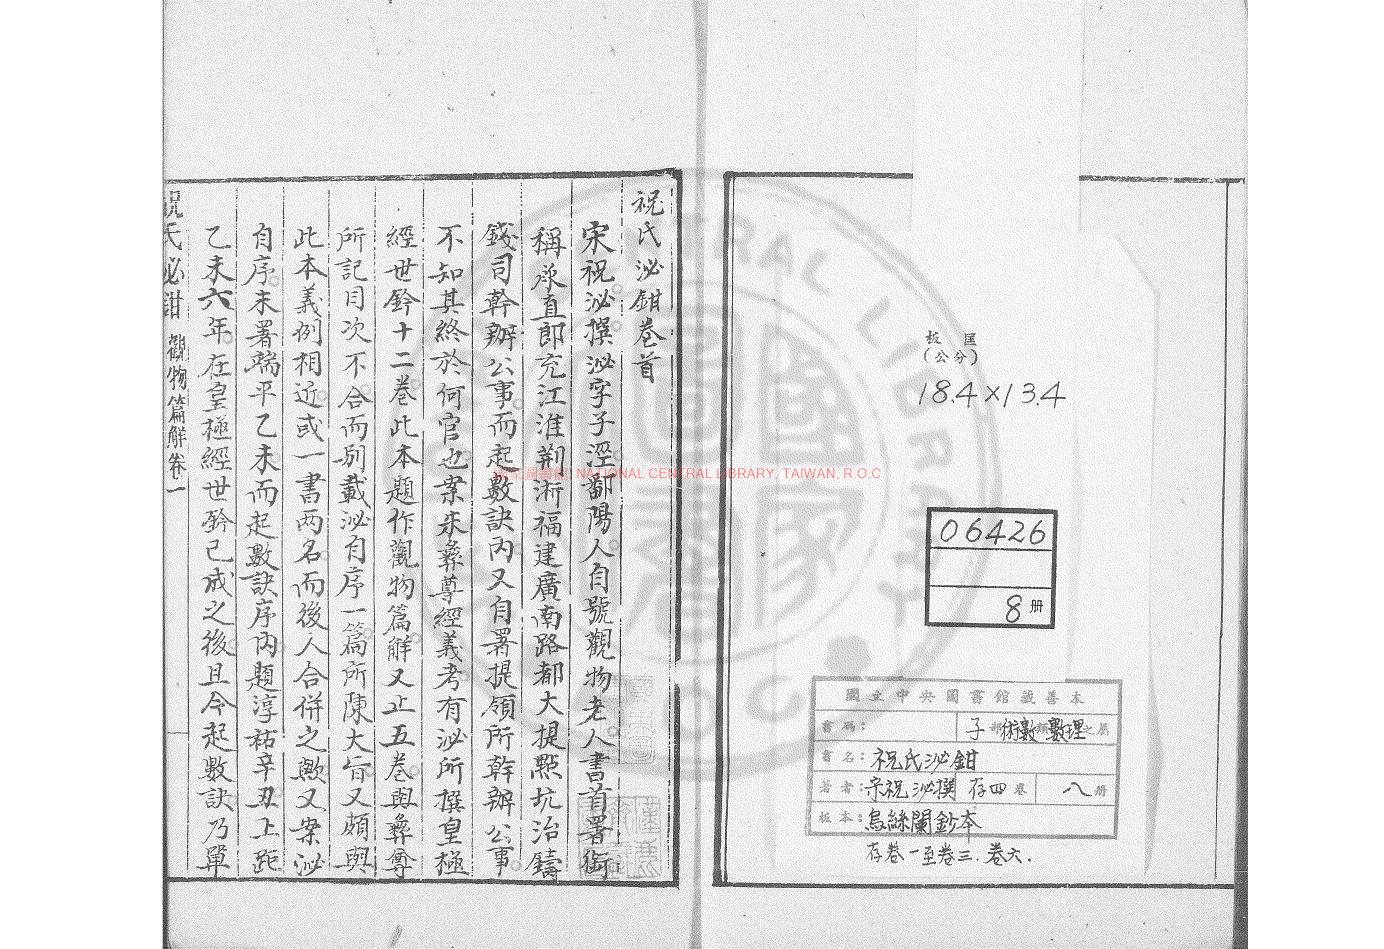 板匡
(公分)
18.4×13.4
06426
8冊
國立中央圖書館藏善本
書碼：
子部術數類數理之屬
書名：祝氏泌鉗
著者：宋祝泌撰 存四卷 八冊
板本：烏絲闌鈔本
存卷一至卷三．卷六．
祝氏泌鉗卷首
宋祝泌撰泌字子涇鄱陽人自號觀物老人書首署銜
稱承直郎充江淮荆浙福建廣南路都大提㸃坑冶鑄
錢司幹辦公事而起數訣内又自署提領所幹辦公事
不知其終於何官也案朱彝尊經義考有泌所撰皇極
經世鈐十二卷此本題作觀物篇解又止五卷與彝尊
所記目次不合而别載泌自序一篇所陳大旨又頗與
此本義例相近或一書两名而後人合併之歟又案泌
自序末署端平乙未而起數訣序内題淳祐辛丑上距
乙未六年在皇極經世鈐已成之後且今起數訣乃單
祝氏泌鉗 觀物篇解卷一
國家圖書館, NATIONAL CENTRAL LIBRARY, TAIWAN, R.O.C